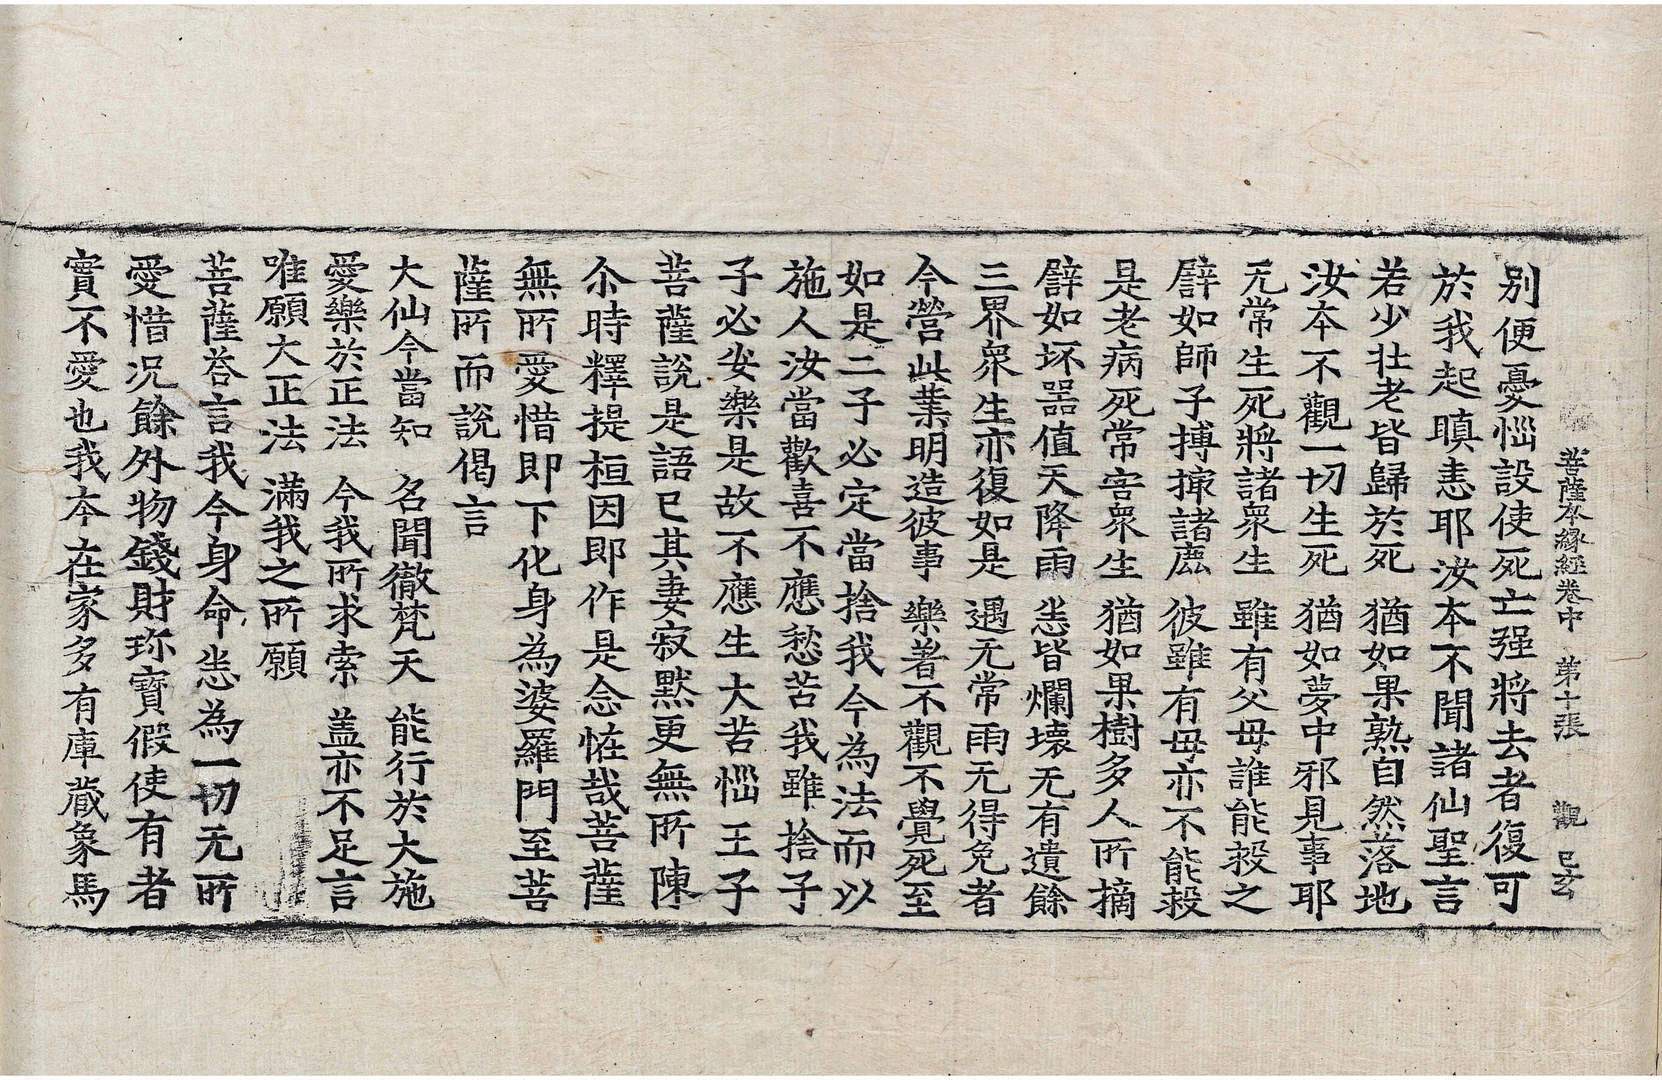 菩薩本緣經卷中 第十張 觀
別便憂惱設使死亡强將去者復可
於我起瞋恚耶汝本不聞諸仙聖言
若少壯老皆歸於死 猶如果熟自然落地
汝本不觀一切生死 猶如夢中邪見事耶
无常生死將諸衆生 雖有父母誰能救之
譬如師子搏撮諸鹿 彼雖有母亦不能救
是老病死常害衆生 猶如果樹多人所摘
譬如坏器值天降雨 悉皆爛壞无有遺餘
三界衆生亦復如是 遇无常雨无得免者
今營此業明造彼事 樂著不觀不覺死至
如是二子必定當捨我今為法而以
施人汝當歡喜不應愁苦我雖捨子
子必安樂是故不應生大苦惱王子
菩薩說是語已其妻寂默更無所陳
尒時釋提桓因即作是念恠哉菩薩
無所愛惜即下化身為婆羅門至菩
薩所而說偈言
大仙今當知 名聞徹梵天 能行於大施
愛樂於正法 今我所求索 盖亦不足言
唯願大正法 滿我之所願
菩薩荅言我今身命悉為一切无所
愛惜况餘外物錢財珎寶假使有者
實不愛也我本在家多有庫藏象馬